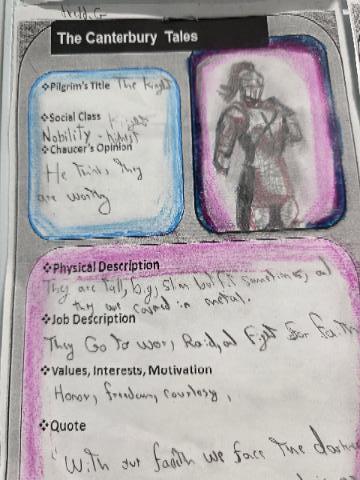 The Canterbury Tales
❖Pilgrim's Title The Knight
❖Social Class
Nobility - highest
❖Chaucer's Opinion
He Thinks They
are worthy
❖Physical Description
They are tall, big, slim but fit sometimes, and
they are covered in metal.
❖Job Description
They Go To war, Raid, and Fight For Faith
❖Values, Interests, Motivation
Honor, freedom, courtesy,
❖Quote
"With out faith we face The